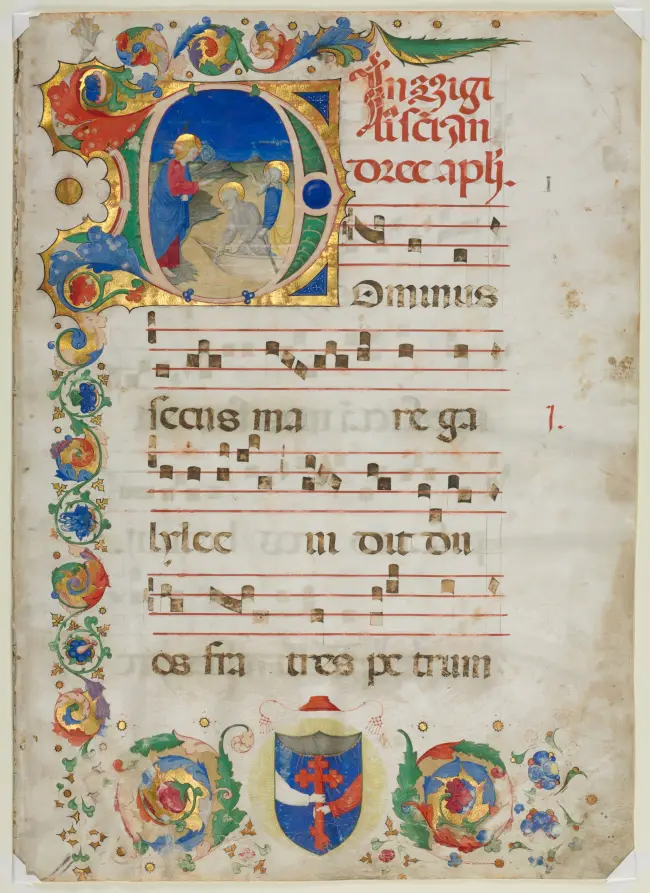 In vigi
li sc̄i An
dree apli.
I
DOminus
secus ma re ga
1.
lylee ui dit du
os fra tres pe trum